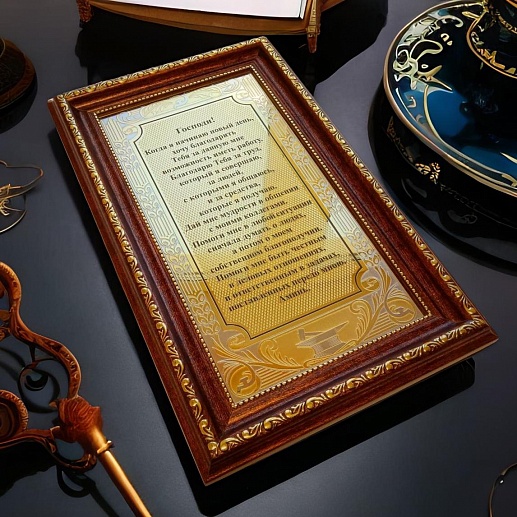 Господи!
Когда я начинаю новый день,
хочу благодарить
Тебя за данную мне
возможность иметь работу.
Благодарю Тебя за труд,
который я совершаю,
за людей,
с которыми я общаюсь,
и за средства,
которые я получаю.
Дай мне мудрости в общении
с моими коллегами.
Помоги мне в любой ситуации
сначала думать о людях,
а потом о моем
собственном отношении.
Помоги мне быть честным
в деловых отношениях
и ответственным в делах,
поставленных передо мной.
Аминь.